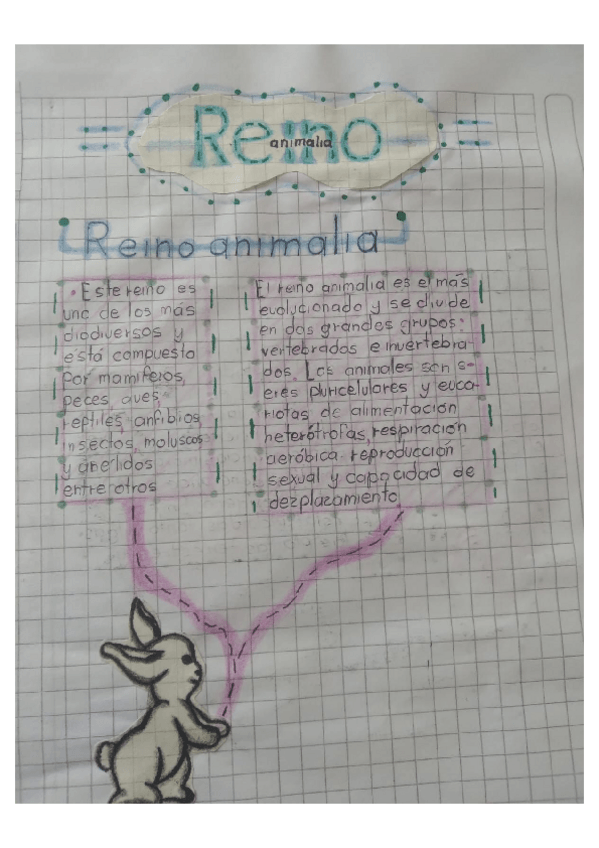 Reino
animalia
Reino animalia
• Este reino es
uno de los más
diodiversos y
está compuesto
por mamiferos,
peces, aves,
reptiles, anfibios,
insectos, moluscos
y anelidos
entre otros
El reino animalia es el más
evolucionado y se divide
en dos grandes grupos:
vertebrados e invertebra-
dos. Los animales son s-
eres pluricelulares y euca-
riotas de alimentación
heterótrofas, respiración
aeróbica. reproducción
sexual y capacidad de
dezplazamiento